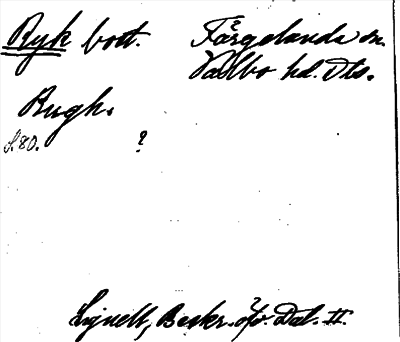 Ryk bost. Färgelanda sn.
Valbo hd. Dls.
Bugh.
s. 80. ?
Lignell, Beskr. öfv. Dal. II.